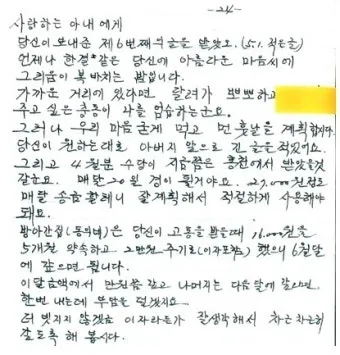 -24-
사랑하는 아내에게
당신이 보내준 제6번째의글을 받았오. (5.1. 적은글)
언제나 한결같은 당신에 아름다운 마음씨에
그리움이 복바치는 밤입니다.
가까운 거리에 있다면 달려가 뽀뽀하고
주고 싶은 충동이 나를 엄습하는군요.
그러나 우리 마음 굳게 먹고 먼 훗날을 계획합시다.
당신이 원하는대로 아버지 앞으로 긴 글을 적었어요.
그리고 4월분 수당이 지금쯤은 홍천에서 받았을것
같군요. 매달 20일 경이 될거야요. 27,000원정도
매달 송금 할테니 잘 계획해서 적절하게 사용해야
돼요.
방아간집 은 당신이 고통을 받을때 16,000원을
5개월 약속하고 2만원 주기로 (이자포함) 했으니 6월달
에 갚으면 됩니다.
이달 금액에서 만원쯤 갚고 나머지는 다음달에 갚으면
한번 내는데 부담을 덜겠지요
더 빚지지 않겠금 이자라든가 잘생각해서 차근차근히
갚도록 해 봅시다.